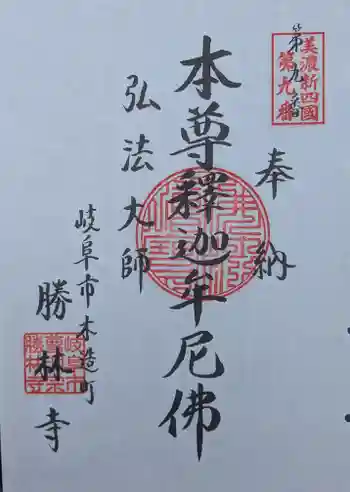 美濃新四國
第九番
第九番
奉納
本尊釋迦牟尼佛
弘法大師
岐阜市木造町
勝林寺